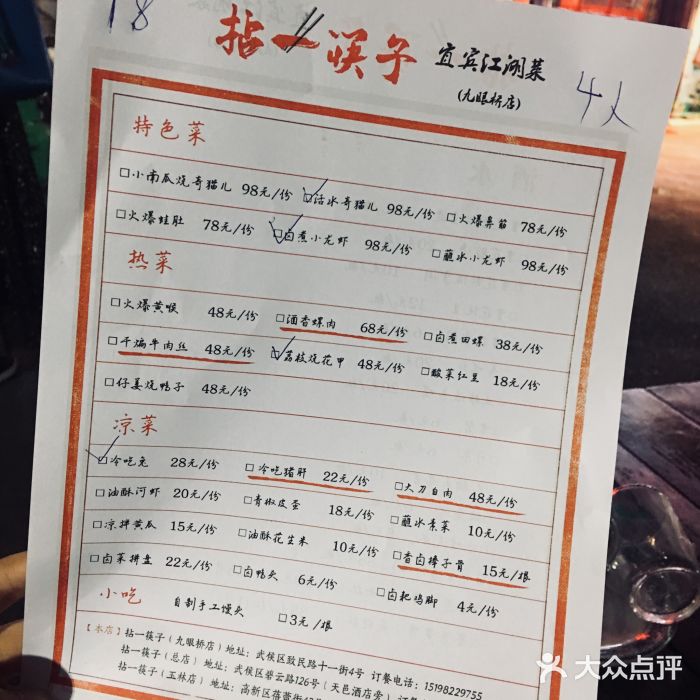 18
拈一筷子 宜宾江湖菜
(九眼桥店)
4人
特色菜
□小南瓜烧奇猫儿 98元/份 □活水奇猫儿 98元/份 □火爆鼻筋 78元/份
□火爆蛙肚 78元/份 □卤煮小龙虾 98元/份 □蘸水小龙虾 98元/份
热菜
□火爆黄喉 48元/份 □酒香螺肉 68元/份 □卤煮田螺 38元/份
□干煸牛肉丝 48元/份 □荔枝烧花甲 48元/份 □酸菜红豆 18元/份
□仔姜烧鸭子 48元/份
凉菜
□冷吃兔 28元/份 □冷吃猪肝 22元/份 □大刀白肉 48元/份
□油酥河虾 20元/份 □青椒皮蛋 18元/份 □蘸水素菜 10元/份
□凉拌黄瓜 15元/份 □油酥花生米 10元/份 □香卤棒子骨 15元/根
□卤菜拼盘 22元/份 □卤鸭头 6元/份 □卤耙鸡脚 4元/份
小吃 自制手工馒头 □3元/根
【本店】拈一筷子(九眼桥店)地址:武侯区致民路十一街4号 订餐电话:15198229755
拈一筷子(总店)地址:武侯区碧云路126号(天邑酒店旁)订餐
拈一筷子(玉林店)地址:高新区蓓蕾街
大众点评